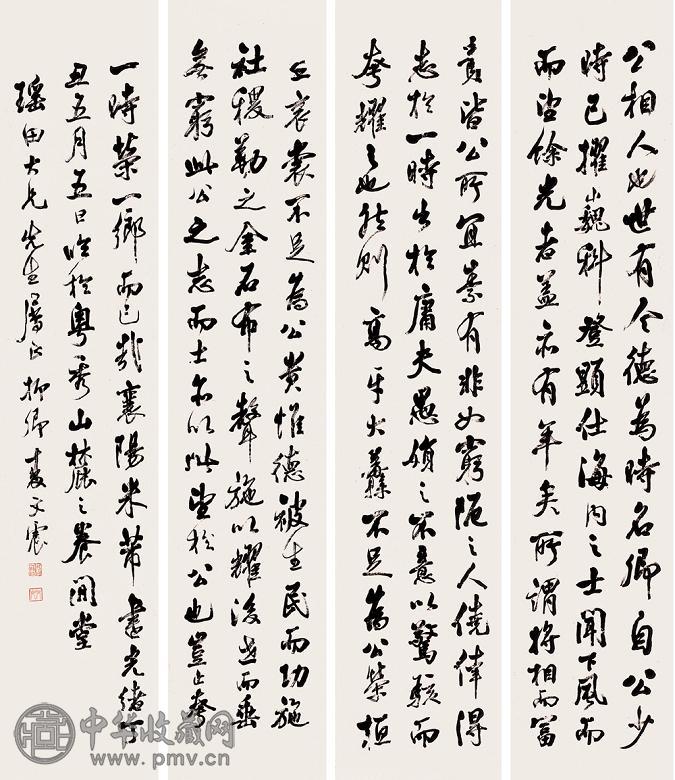 公相人也世有令德為時名卿自公少
時已擢巍科登顯仕海内之士聞下風而
而望餘光者蓋亦有年矣所謂將相而富
貴皆公所宜素有非如窮阨之人僥倖得
志於一時出於庸夫愚婦之不意以驚駭而
夸耀之也然則高牙大纛不足為公榮桓
圭衮裳不足為公貴惟德被生民而功施
社稷勒之金石布之聲施以耀後世而垂
無窮此公之志而士亦以此望於公也豈止夸
一時榮一鄉而已哉襄陽米芾書光緒
丑五月五日臨於粵秀山麓之養閒堂
瑤田大兄先生屬正柳卿文震
中华收藏网
www.pmv.cn